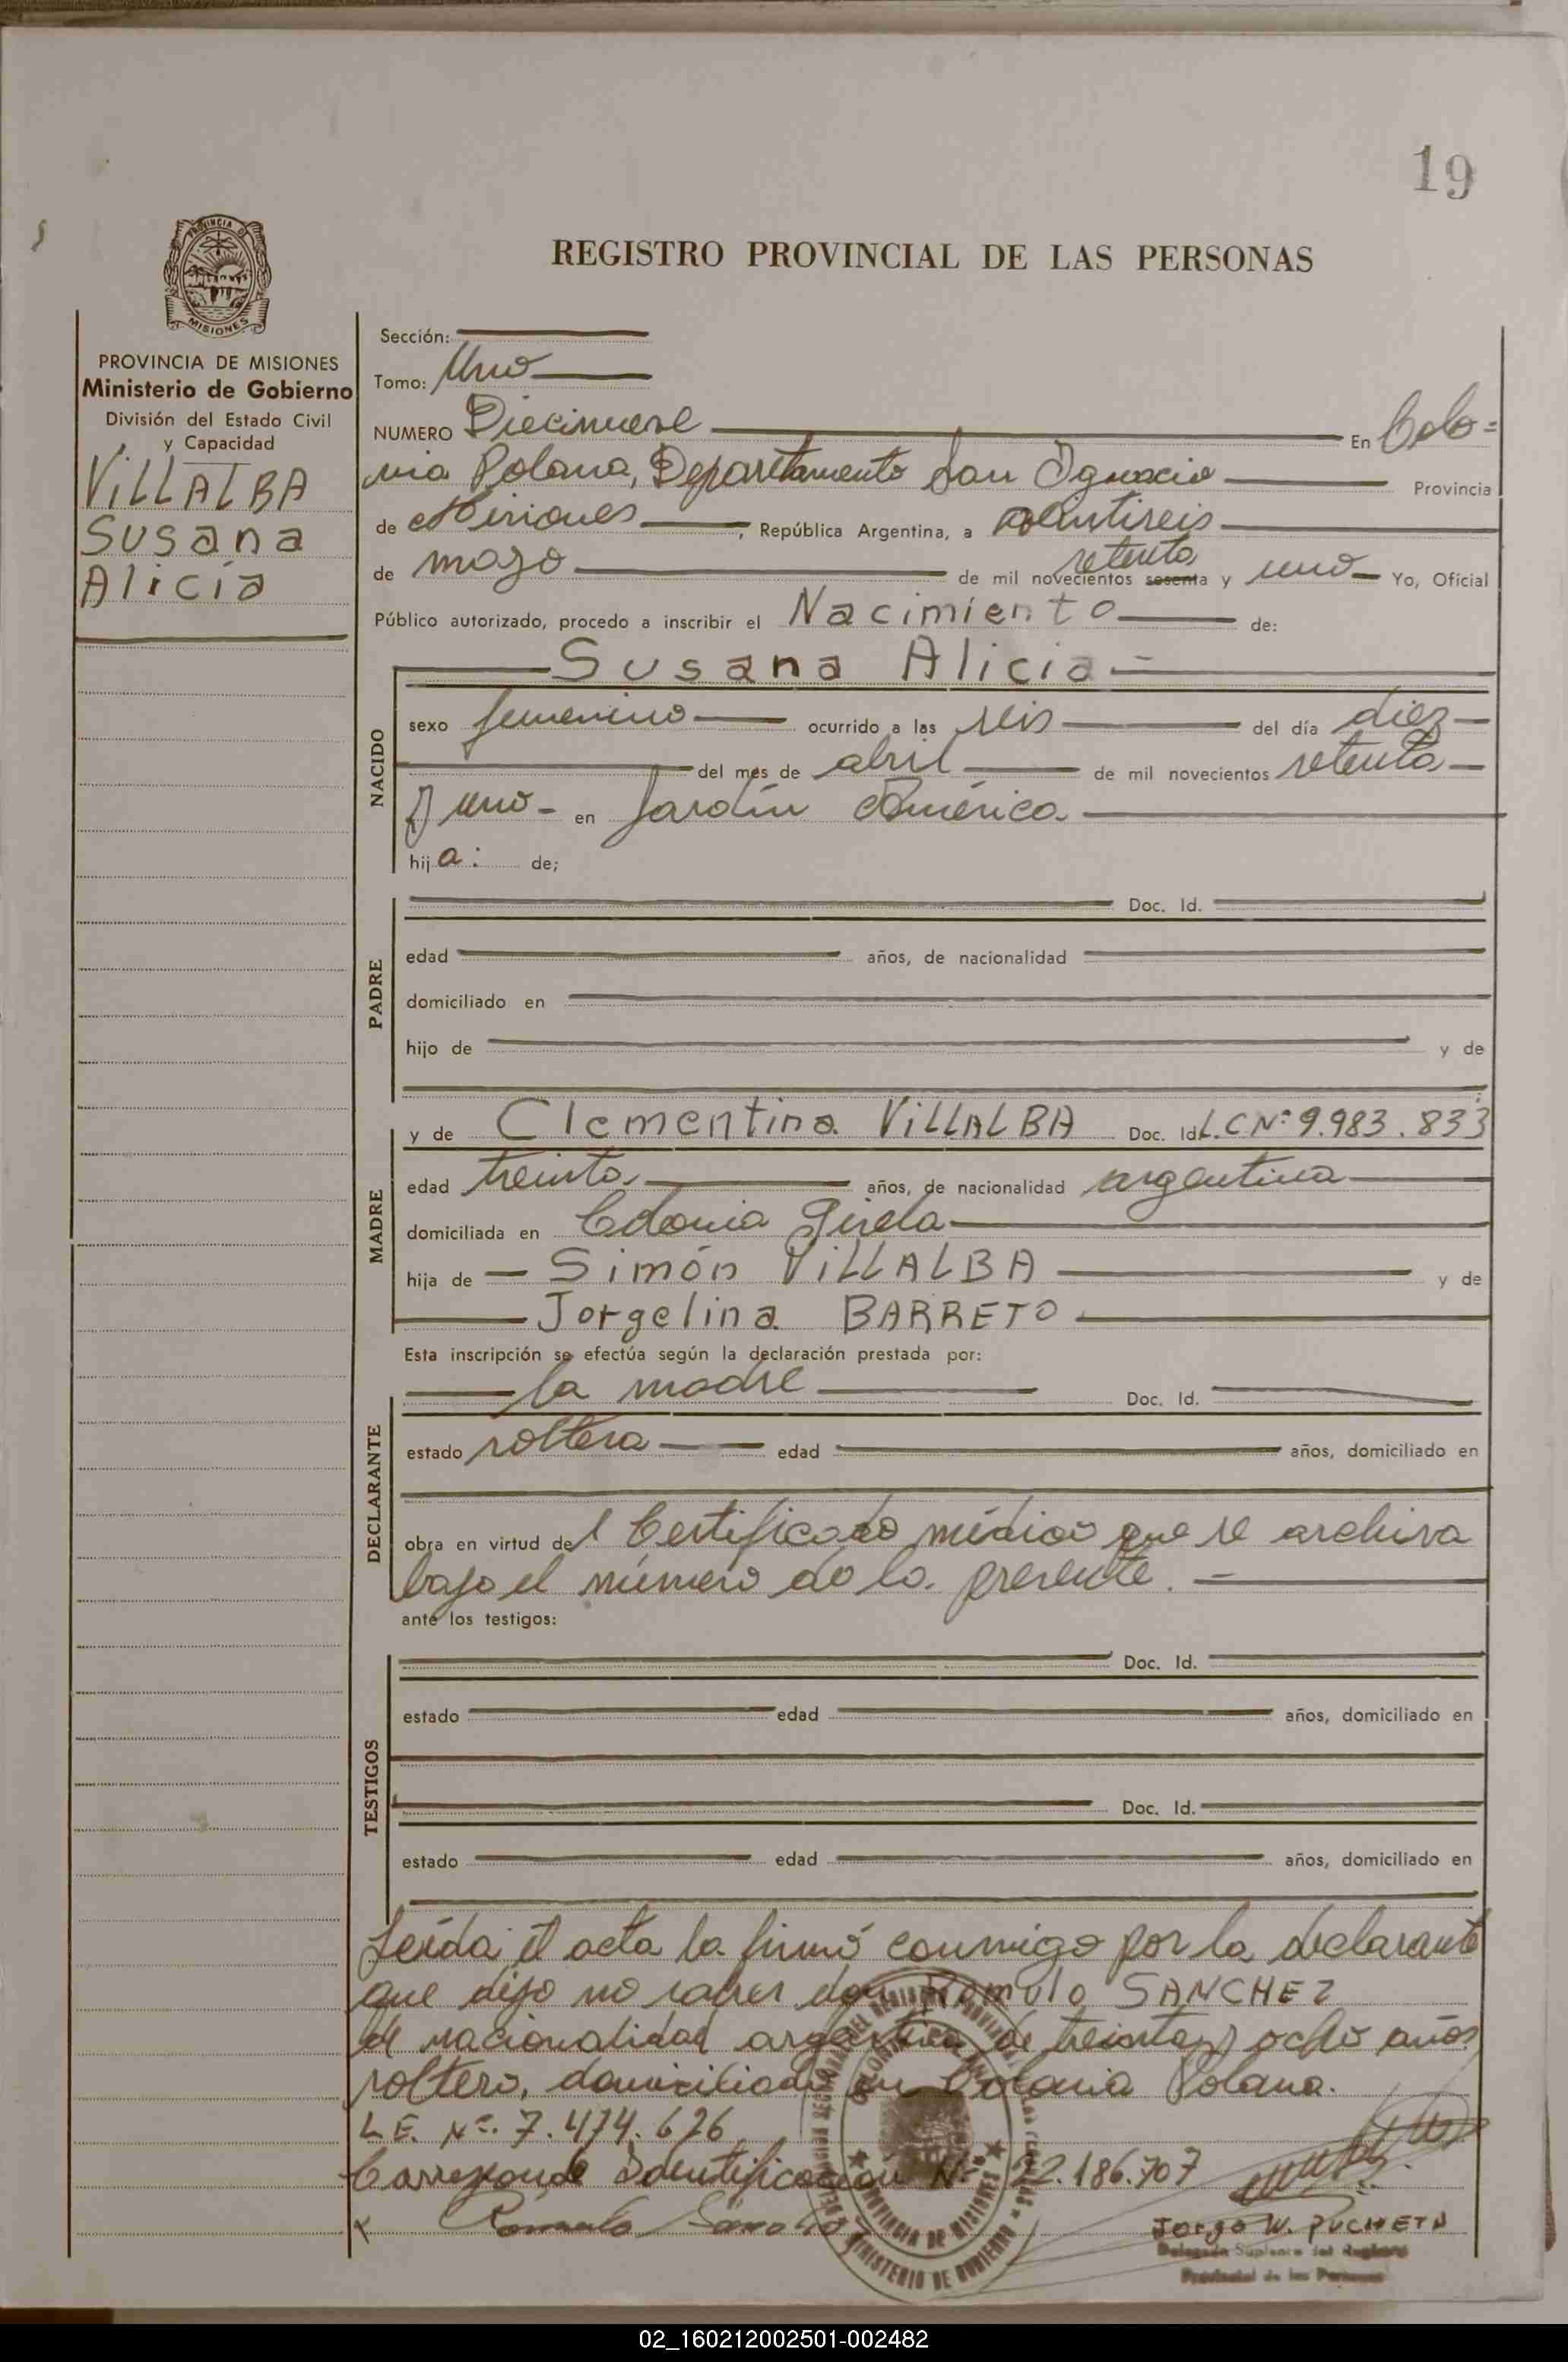 19
PROVINCIA DE
MISIONES
REGISTRO PROVINCIAL DE LAS PERSONAS
PROVINCIA DE MISIONES
Ministerio de Gobierno
División del Estado Civil
y Capacidad
VILLALBA
Susana
Alicia
Sección:
Tomo: Uno
NUMERO Diecinueve En Colo=
nia Polana, Departamento San Ignacio Provincia
de Misiones, República Argentina, a veintiseis
de mayo de mil novecientos sesenta setenta y uno Yo, Oficial
Público autorizado, procedo a inscribir el Nacimiento de:
Susana Alicia
NACIDO
sexo femenino ocurrido a las seis del día diez
del mes de abril de mil novecientos setenta
y uno en Jardín América
hija: de;
PADRE
Doc. Id.
edad años, de nacionalidad
domiciliado en
hijo de y de
MADRE
y de Clementina VILLALBA Doc. Id L.C Nº 9.983.833
edad treinta años, de nacionalidad argentina
domiciliada en Colonia Gisela
hija de Simón VILLALBA y de
Jorgelina BARRETO
Esta inscripción se efectúa según la declaración prestada por:
DECLARANTE
la madre Doc. Id.
estado soltera edad años, domiciliado en
obra en virtud del Certificado médico que se archiva
bajo el número de la presente.
ante los testigos:
TESTIGOS
Doc. Id.
estado edad años, domiciliado en
Doc. Id.
estado edad años, domiciliado en
Leída el acta la firmó conmigo por la declarante
que dijo no saber don Romulo SANCHEZ
de nacionalidad argentina de treinta y ocho años
soltero, domiciliado en Colonia Polana.
L.E. Nº. 7.474.626
Corresponde Identificación Nº 22.186.707
Romulo Sanchez
Jorge W. PUCHETA
Delegado Suplente del Registro
Provincial de las Personas
PROVINCIA DE MISIONES
MINISTERIO DE GOBIERNO
02_160212002501-002482